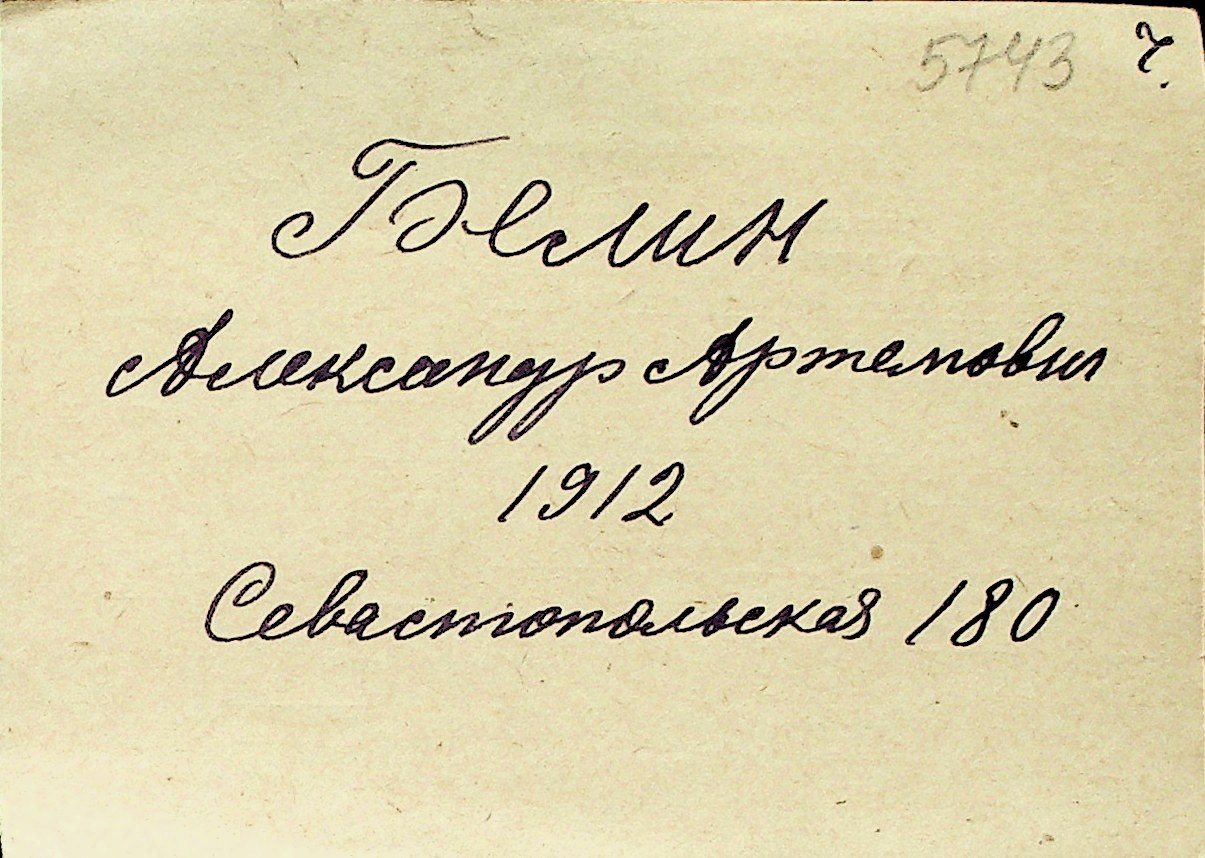 5743 ч.
Белин
Александр Артемович
1912
Севастопольская 180